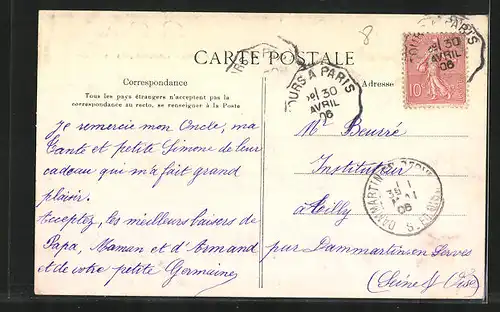 8
CARTE POSTALE
Correspondance
Tous les pays étrangers n'acceptent pas la
correspondance au recto, se renseigner à la Poste
Adresse
TOURS A PARIS
30
AVRIL
06
TOURS A PARIS
30
AVRIL
06
10
Je remercie mon Oncle, ma
Tante et petite Simone de leur
cadeau qui m'a fait grand
plaisir.
Acceptez, les meilleurs baisers de
Papa, Maman et d'Armand
et de votre petite Germaine
Mr Beurré
Instituteur
à Tilly
par Dammartin en Serves
(Seine & Oise)
DAMMARTIN
06